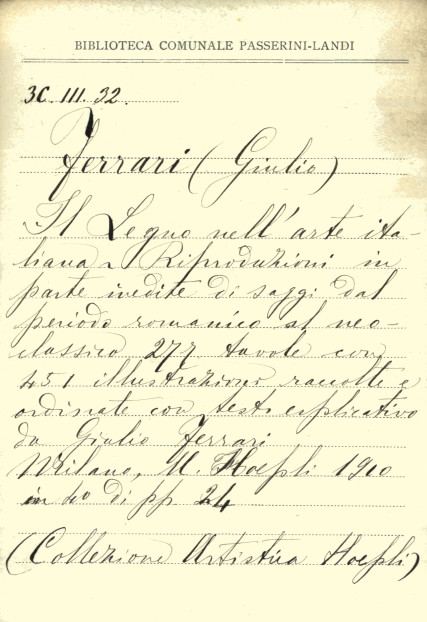 BIBLIOTECA COMUNALE PASSERINI-LANDI
3C. III. 32.
Ferrari (Giulio)
Il Legno nell'arte ita-
liana. Riproduzioni in
parte inedite di saggi dal
periodo romanico al neo-
classico 277 tavole con
451 illustrazioni raccolte e
ordinate con testo esplicativo
da Giulio Ferrari
Milano, U. Hoepli 1910
in 4º di pp. 24
(Collezione Artistica Hoepli)